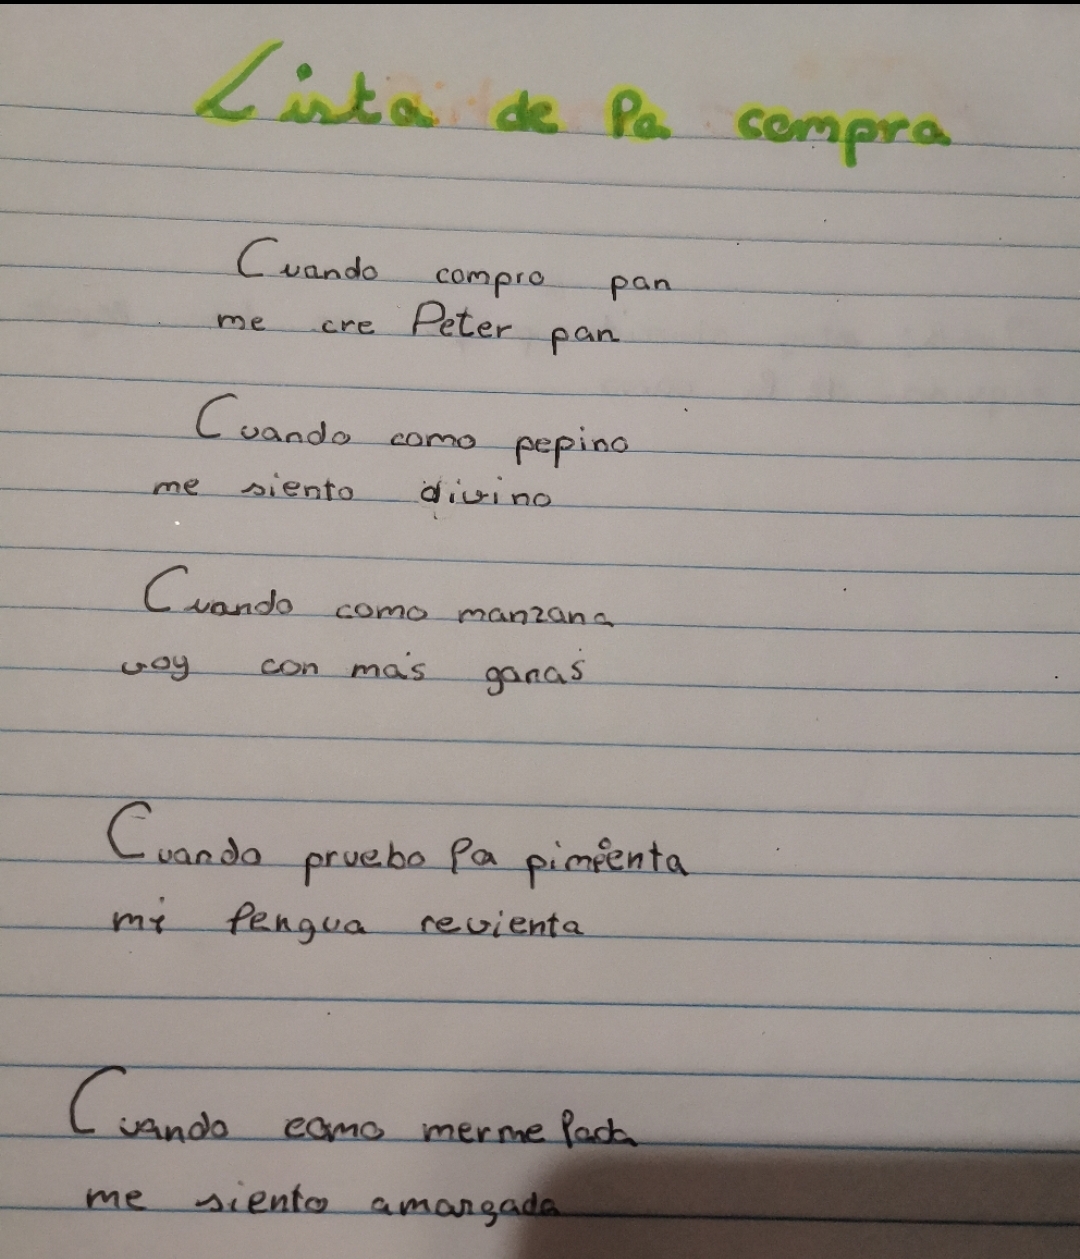 Lista de la compra
Cuando compro pan
me cre Peter pan
Cuando como pepino
me siento divino
Cuando como manzana
voy con más ganas
Cuando pruebo la pimienta
mi lengua revienta
Cuando como mermelada
me siento amargada